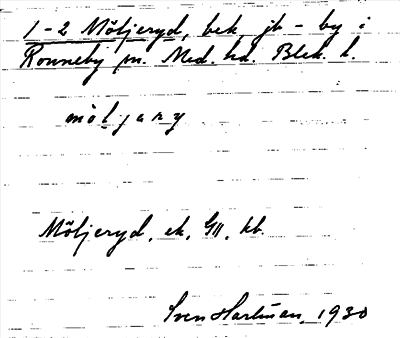 1-2 Möljeryd, bek. jb - by i
Ronneby sn. Med. hd. Blek. l.
möljary
Möljeryd, ek. GII, kb.
Sven Hartman, 1930